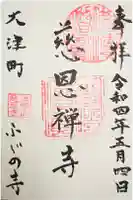 奉拝
令和四年五月四日
慈恩禅寺
大津町
ふじの寺